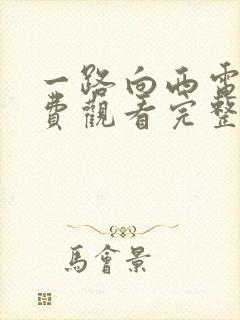 一路向西電
費觀看完整
馬會景